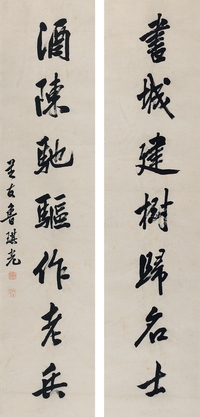 書城建樹歸名士
酒陳馳驅作老兵
星友魯琪光